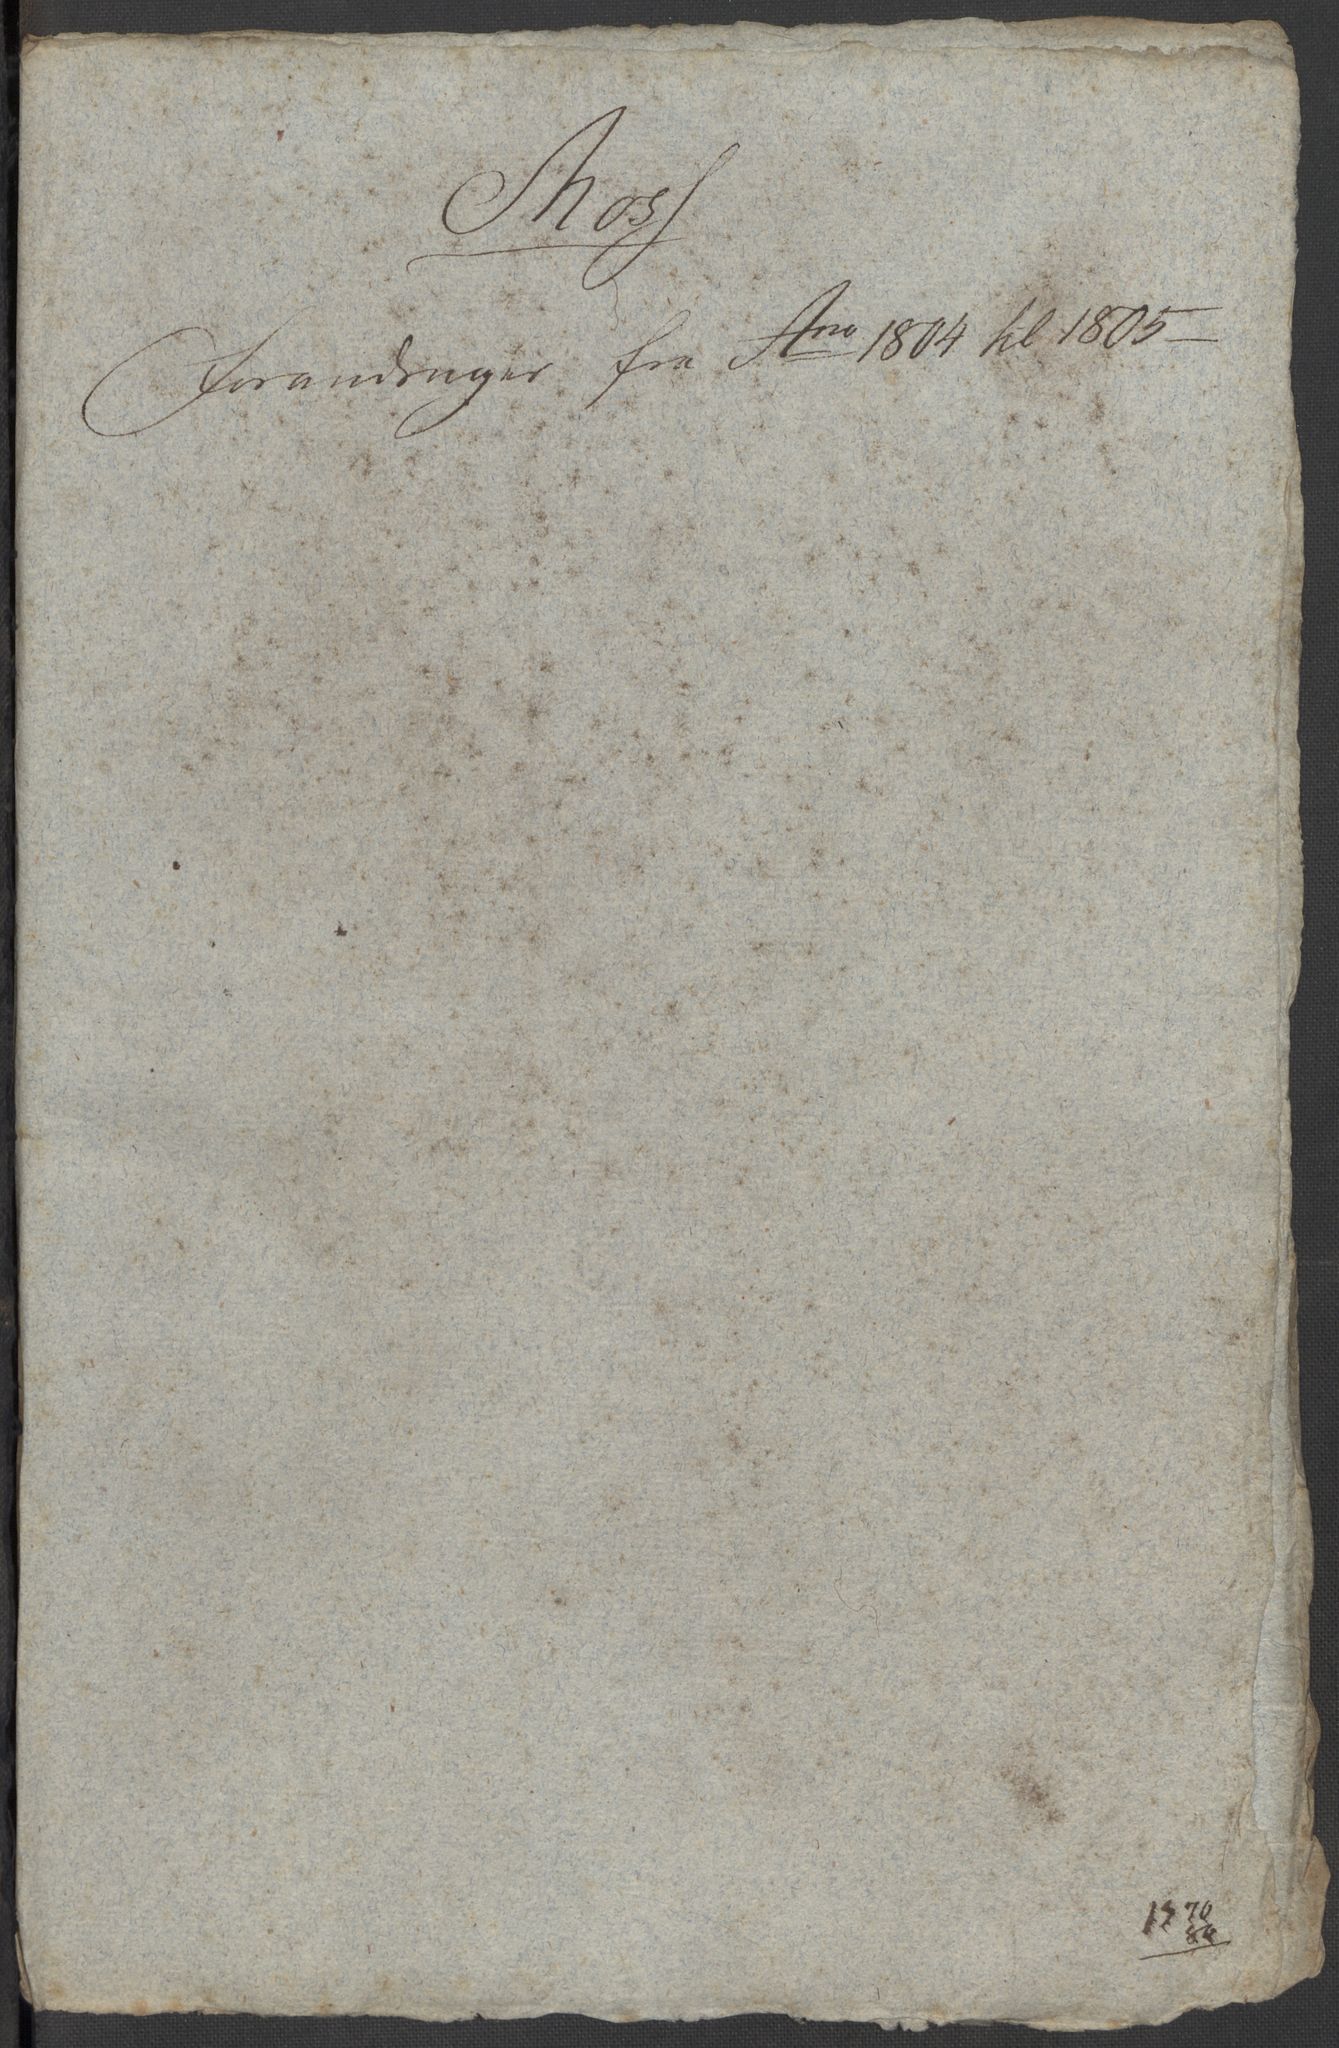 Moss
Forandringer fra Ano 1804 til 1805
17 70
80